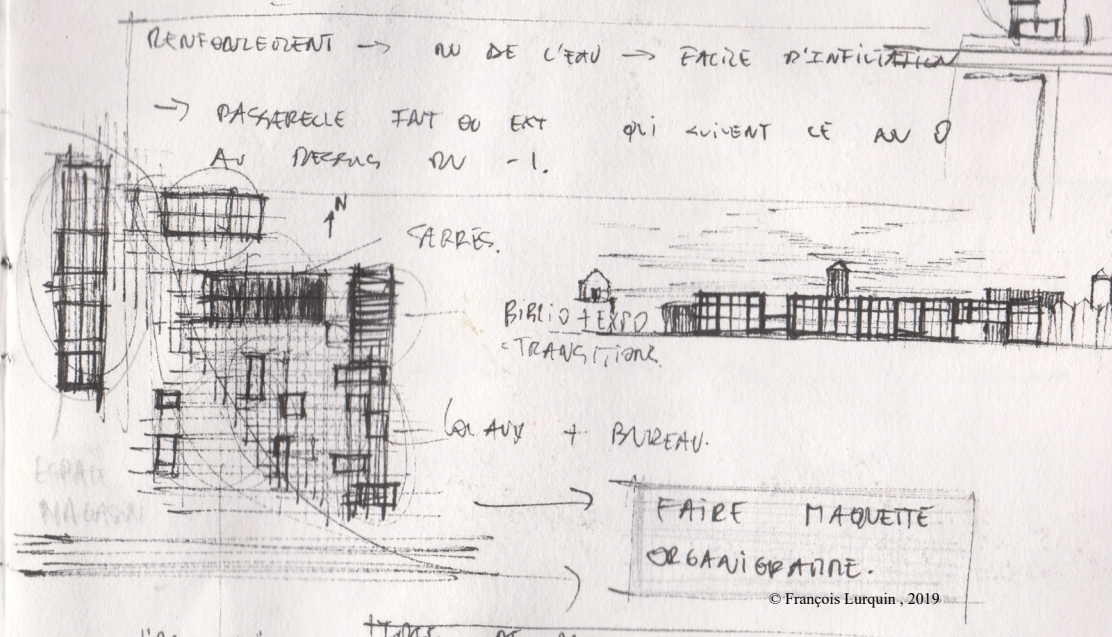 RENFONCEMENT → NV DE L'EAU → FACILE D'INFILTRATION
→ PASSERELLE INT OU EXT QUI SUIVENT CE
AU DESSUS DU -1.
N
SERRES.
BIBLIO + EXPO
TRANSITION.
LOCAUX + BUREAU.
ESPACE
MAGASIN
FAIRE MAQUETTE
ORGANIGRAMME.
© François Lurquin , 2019